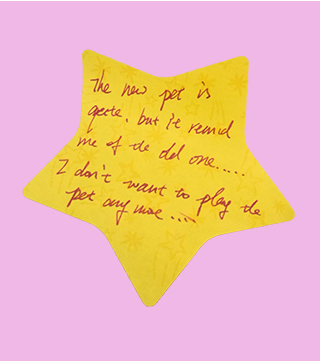 The new pet is
qute, but it remid
me of the old one.....
I don't want to play the
pet any more ....